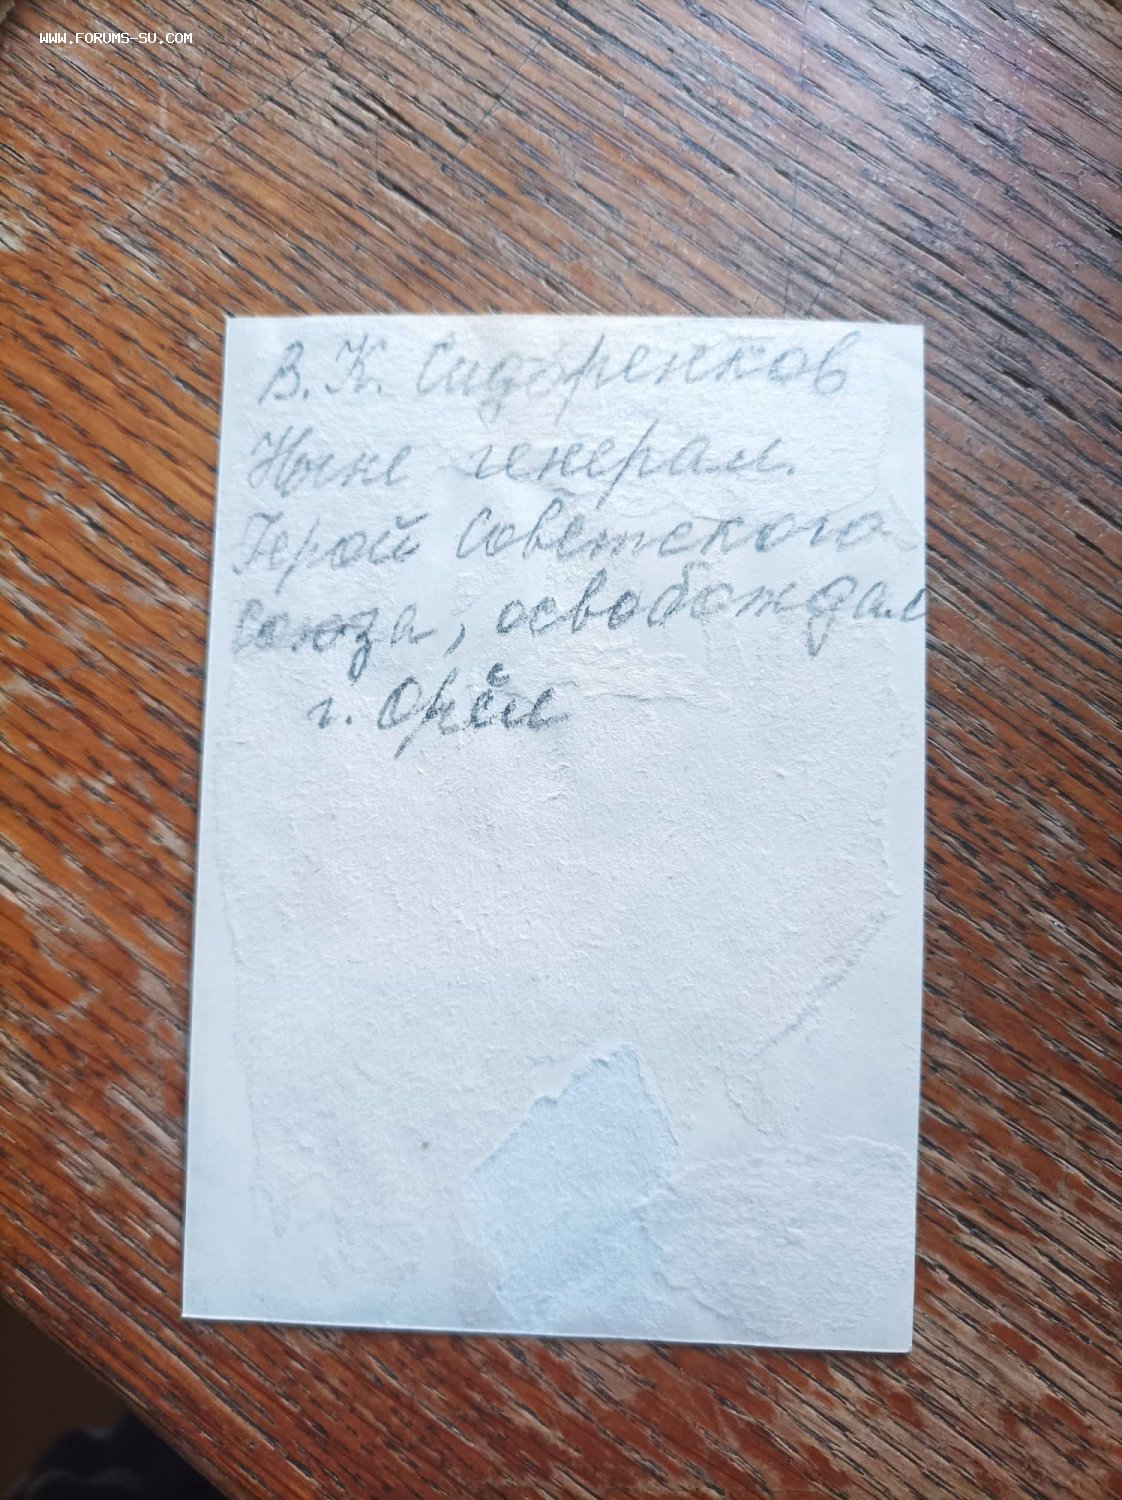 WWW.FORUMS-SU.COM
В. К. Сидоренков
Ныне генерал.
Герой Советского
Союза, освобождал
г. Орёл